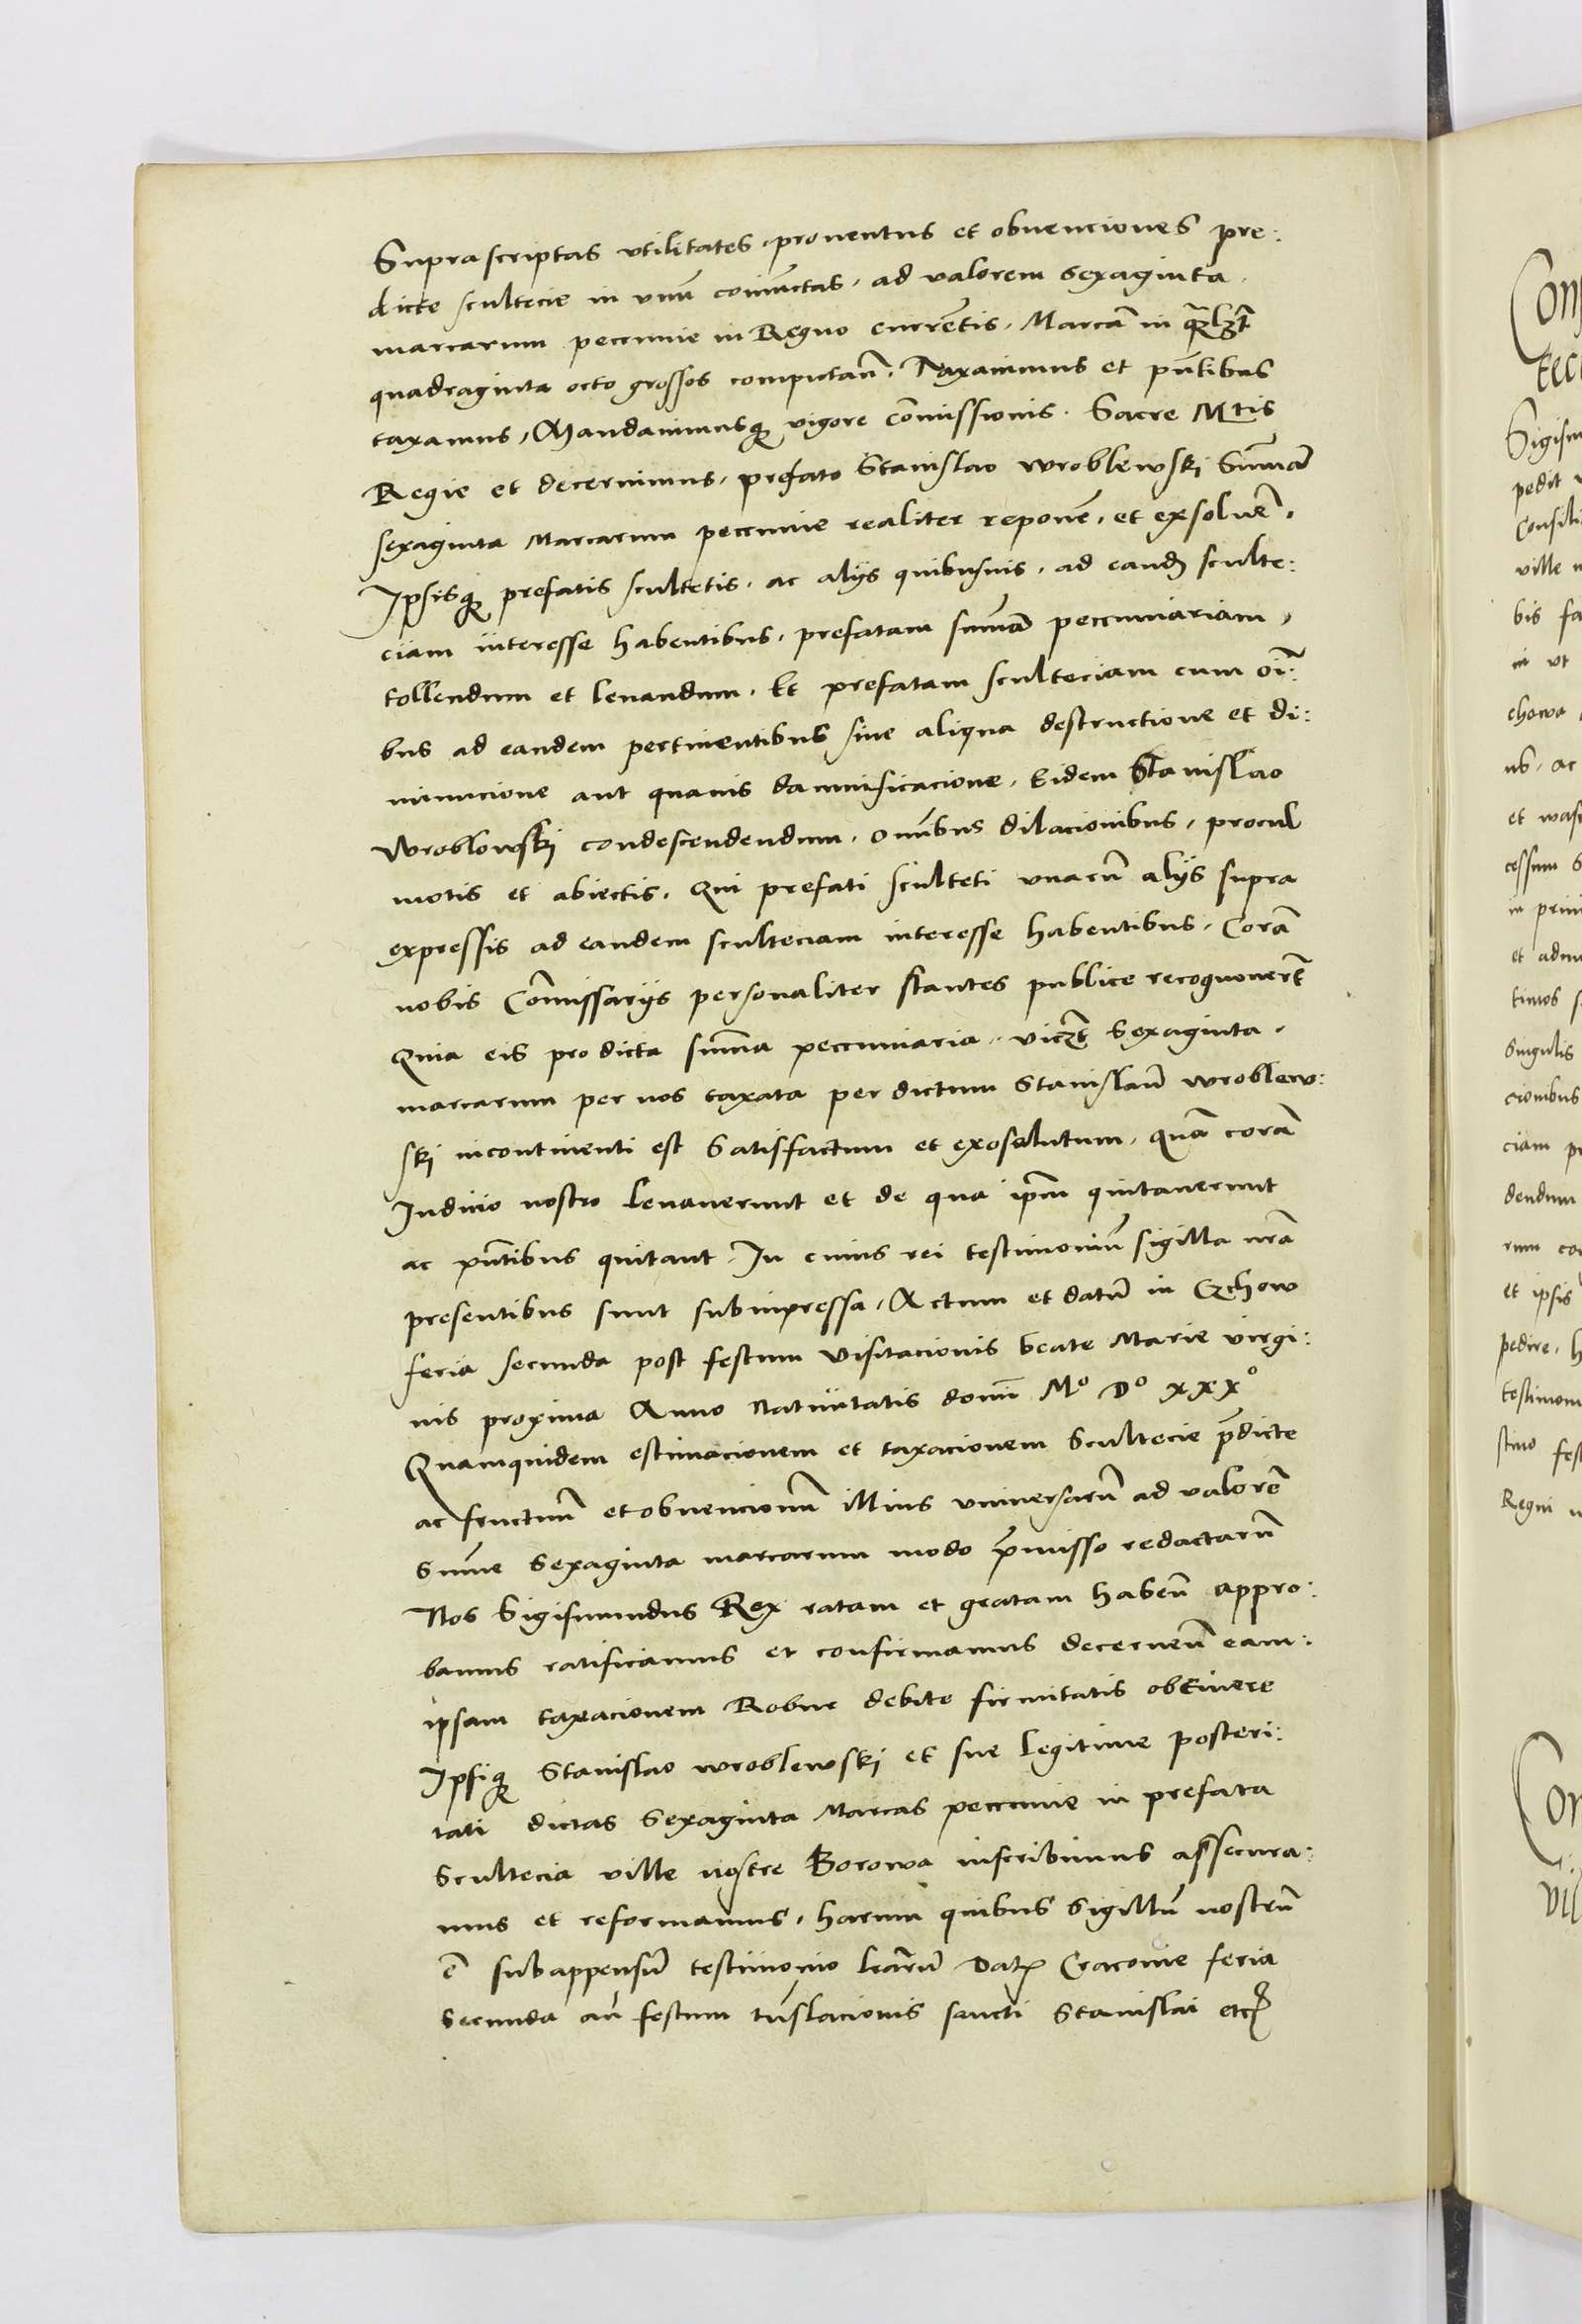 Suprascriptas vtilitates proventus et obvenciones pre:
dicte scultecie in vnū coniūctas, ad valorem sexaginta
marcarum peccunie in Regno currētis, Marcā in qͣlꝫt
quadraginta octo grossos computań, Taxavimus et pñtibus
taxamus, Mandavimusqꝫ vigore cōmissionis Sacre Mtis
Regie et decernimus, prefato Stanislao Wroblewski Sūmā
sexaginta Marcarum peccunie realiter reponeñ, et exsolueñ,
Ipsisqꝫ prefatis scultetis, ac alijs quibusuis, ad eandē sculte:
ciam interesse habentibus, prefatam sūmā peccuniariam,
tollendum et leuandum, Et prefatam sculteciam cum oī:
bus ad eandem pertinentibus sine aliqua destructione et di:
minucione aut quavis damnificacione, Eidem Stanislao
Wroblowski condescendendum, omībus dilacionibus, procul
motis et abiectis, Qui prefati sculteti vnacū alijs supra
expressis ad eandem sculteciam interesse habentibus, Corā
nobis Cōmissarijs personaliter stantes publice recognouerūt
Quia eis pro dicta sūma peccuniaria, vicꝫt sexaginta,
marcarum per nos taxata per dictum Stanislaū Wroblew:
ski incontinenti est satisfactum et exosolutum, quā corā
Iudicio nostro leuauerunt et de qua ip̄m quitauerunt
ac pñtibus quitant. In cuius rei testimoniū sigilla nr̄a
presentibus sunt subinpressa, Actum et datū in Czchow
feria secunda post festum Visitacionis beate Marie virgi:
nis proxima Anno Natiuitatis domī Mo Do xxxo
Quamquidem estimacionem et taxacionem Scultecie p̄dicte
ac fructuū et obuencionū illius vniuersarū ad valorē
Sūme sexaginta marcarum modo p̄misso redactarū
Nos Sigismundus Rex ratam et gratam habeñ appro:
bamus ratificamus et confirmamus decerneñ eam:
ipsam taxacionem Robur debite firmitatis obtinere
Ipsiqꝫ Stanislao Wroblewski et sue legitime posteri:
tati dictas sexaginta Marcas peccunie in prefata
Scultecia ville nostre Borowa inscribimus assecura:
mus et reformamus, harum quibus Sigillū nostrū
ē subappensū testimonio lr̄arū Datꝫ Cracovie feria
secunda añ festum trāslacionis sancti Stanislai etcꝫ